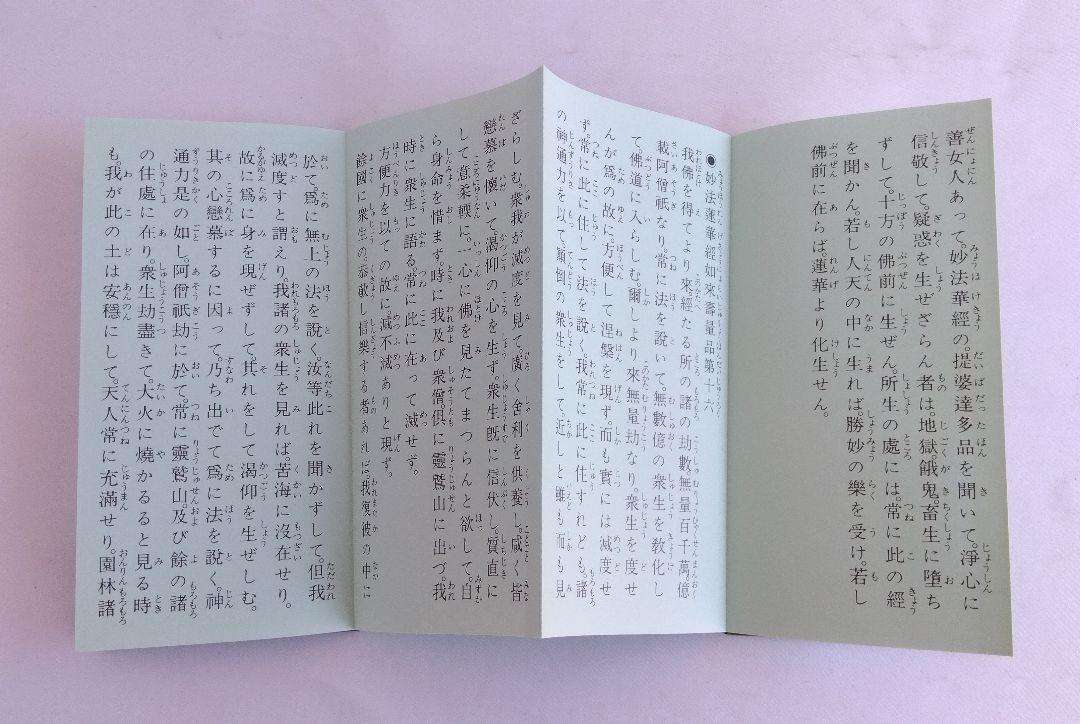 善女人あって。妙法華經の。提婆達多品を聞いて。淨心に
信敬して。疑惑を生ぜざらん者は。地獄。餓鬼。畜生に墮ち
ずして。十方の佛前に生ぜん。所生の處には。常に此の經
を聞かん。若し人天の中に生れば。勝妙の樂を受け。若し
佛前に在らば。蓮華より化生せん。
●妙法蓮華經如來壽量品第十六
我佛を得てより來經たる所の諸の劫數無量百千萬億
載阿僧祇なり。常に法を說いて。無數億の衆生を敎化し
て。佛道に入らしむ。爾しより來無量劫なり。衆生を度せ
んが爲の故に。方便して涅槃を現ず。而も實には滅度せ
ず。常に此に住して法を說く。我常に此に住すれども。諸
の神通力を以て。顚倒の衆生をして。近しと雖も而も見
ざらしむ衆我が滅度を見て。廣く舍利を供養し。咸く皆
戀慕を懷いて。渴仰の心を生ず。衆生旣に信伏し。質直に
して意柔輭に。一心に佛を見たてまつらんと欲して。自
ら身命を惜まず。時に我及び衆僧。俱に靈鷲山に出づ。我
時に衆生に語る。常に此に在って滅せず。
方便力を以ての故に。滅不滅ありと現ず。
餘國に衆生の。恭敬し信樂する者あれば。我復彼の中に
於て。爲に無上の法を說く。汝等此れを聞かずして。但我
滅度すと謂えり。我諸の衆生を見れば。苦海に沒在せり。
故に爲に身を現ぜずして。其れをして渴仰を生ぜしむ。
其の心戀慕するに因って。乃ち出でて爲に法を說く。神
通力是の如し。阿僧祇劫に於て。常に靈鷲山。及び餘の諸
の住處に在り。衆生劫盡きて。大火に燒かるると見る時
も。我が此の土は安穩にして。天人常に充滿せり。園林諸